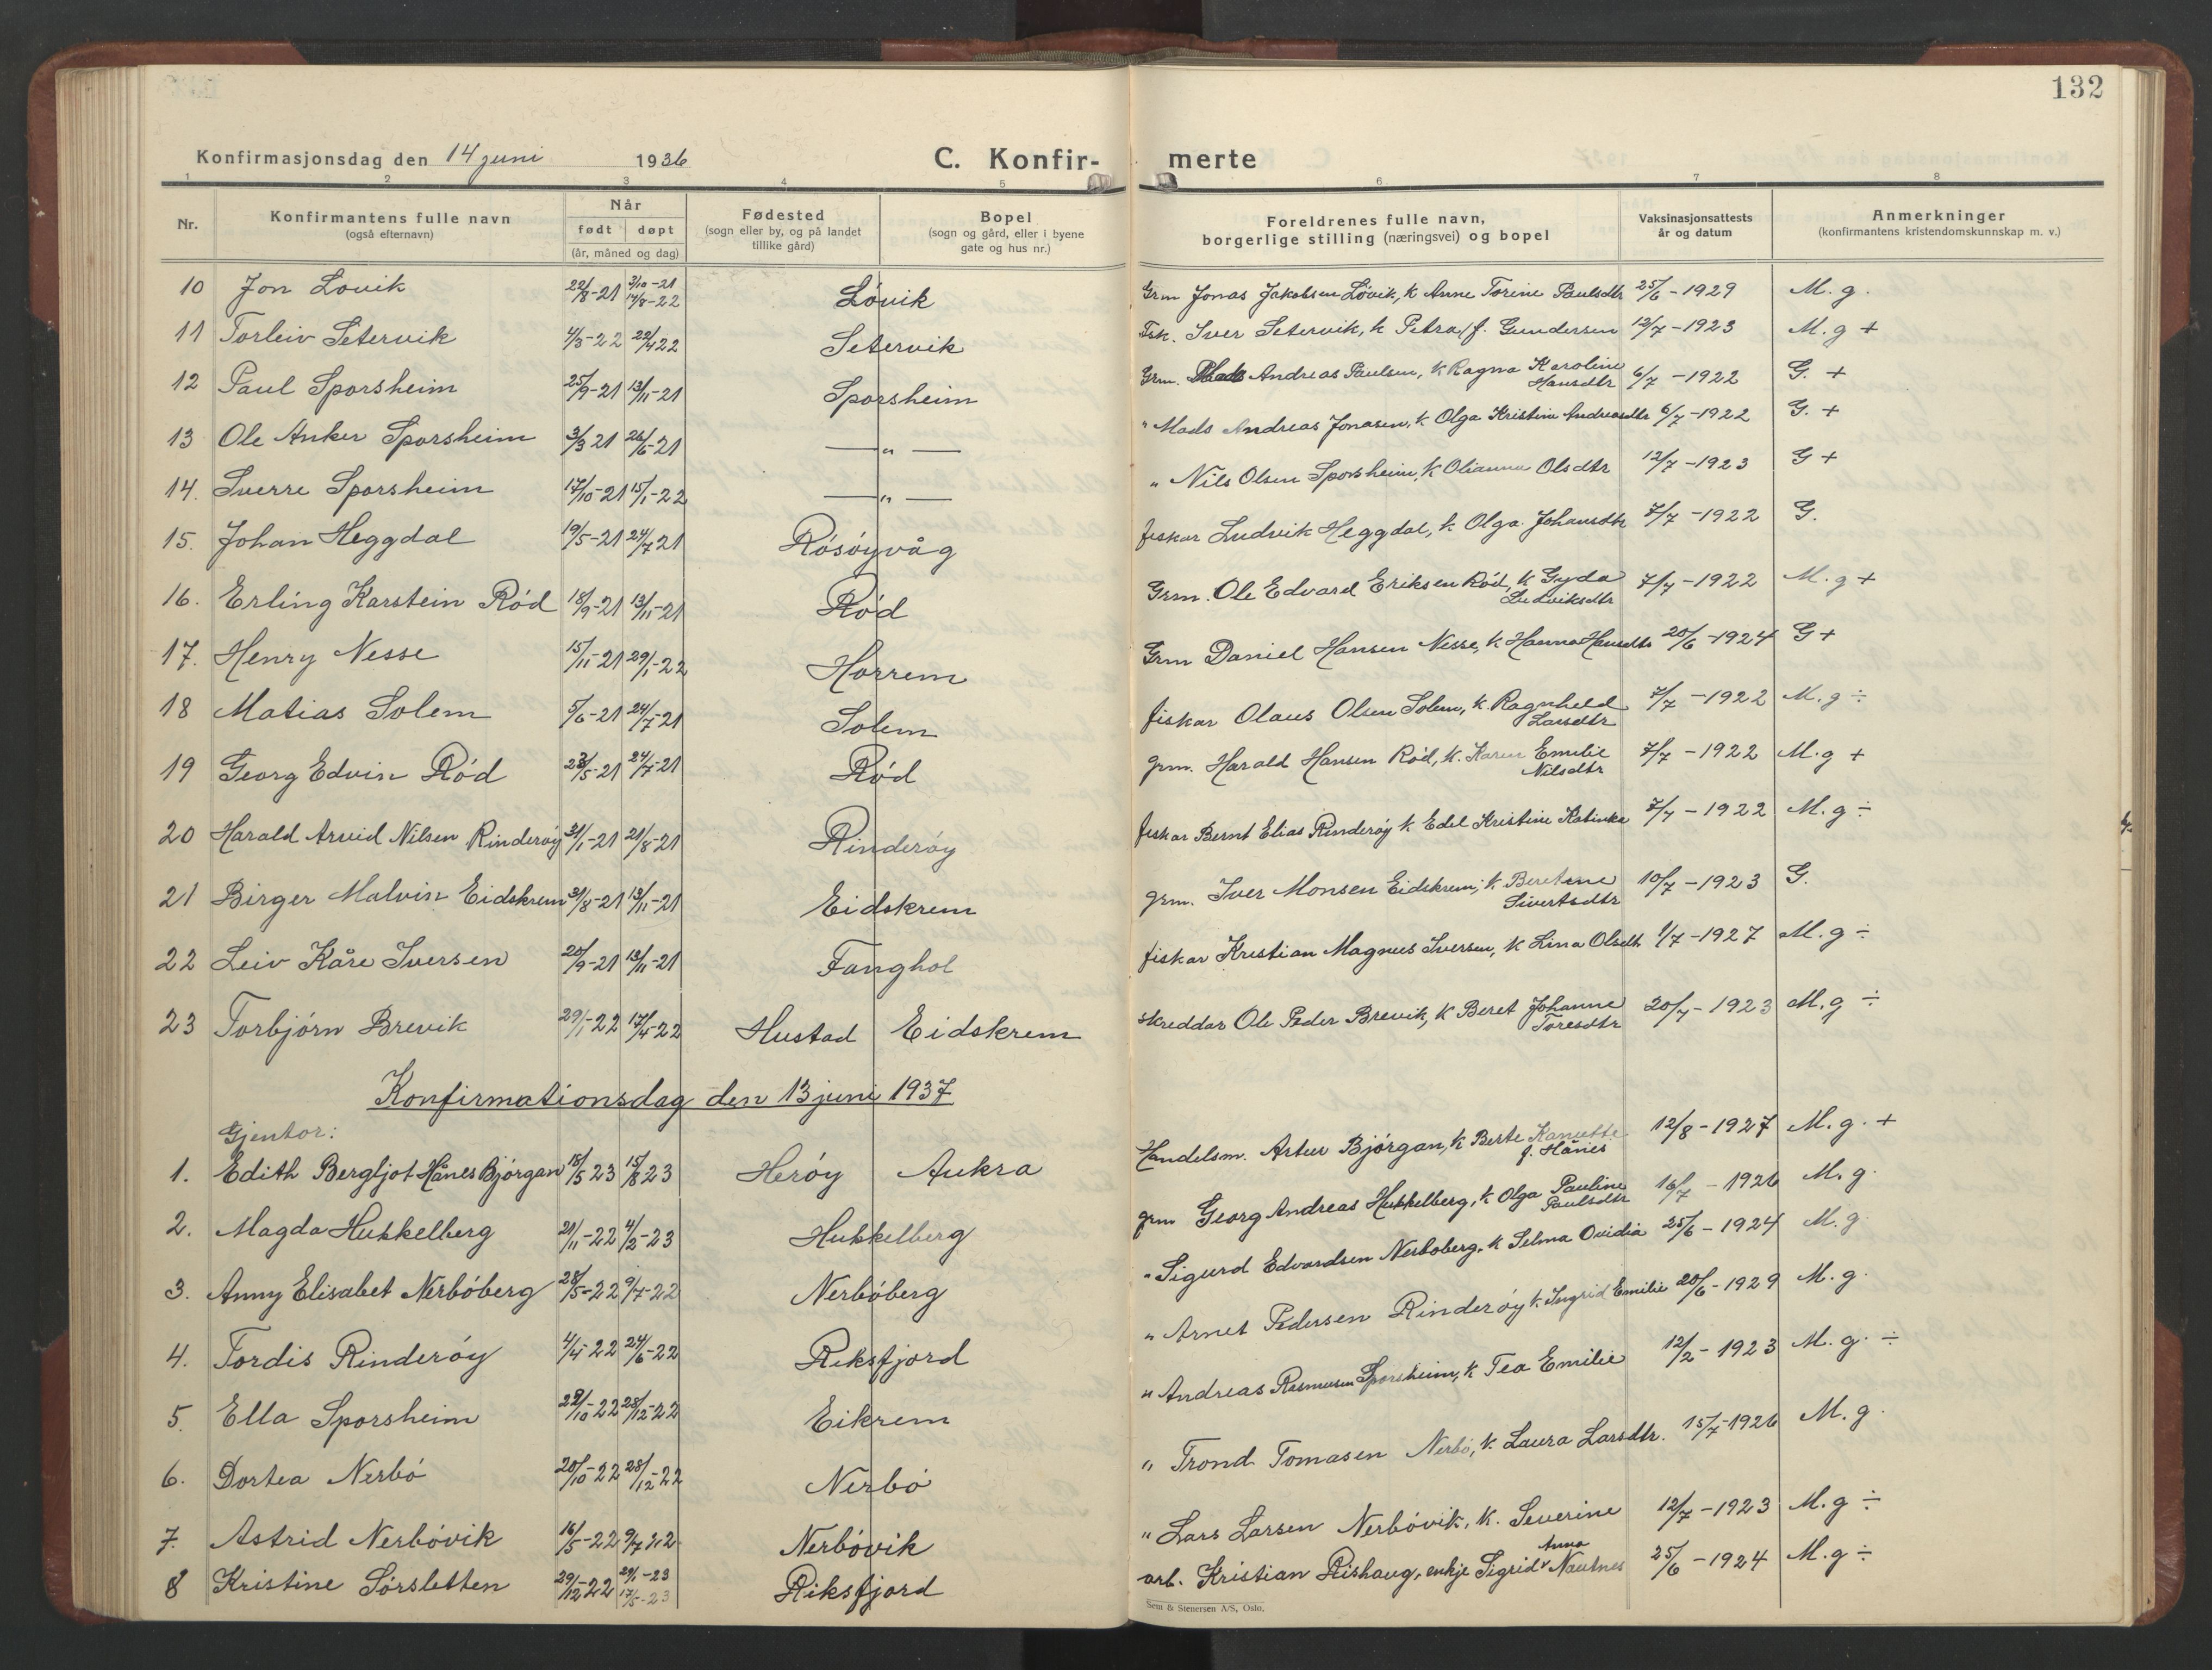 132
Konfirmasjonsdag den 14 juni 1936 C. Konfir- merte
1 2 3 4 5 6 7 8
Nr. Konfirmantens fulle navn (også efternavn) Når født døpt (år, måned og dag) Fødested (sogn eller by, og på landet tillike gård) Bopel (sogn og gård, eller i byene gate og hus nr.) Foreldrenes fulle navn, borgerlige stilling (næringsvei) og bopel Vaksinasjonsattests år og datum Anmerkninger (konfirmantens kristendomskunnskap m. v.)
10 Jon Lovik 22/8-21 2/10-21 14/8-22 Lövik Grm Jonas Jakobsen Lövik, k Anne Torine Paulsdtr 25/6-1929 M.g.
11 Torleiv Setervik 4/3-22 22/4 22 Setervik Fsk. Iver Setervik, k Petra f. Gundersen 12/7-1923 M.g +
12 Paul Sporsheim 25/9-21 13/11-21 Sporsheim Grm. Andreas Paulsen, k Ragna Karoline Hansdtr 6/7-1922 G. +
13 Ole Anker Sporsheim 3/3 21 26/6-21 —"— " Mads Andreas Jonasen, k Olga Kristine Andreasdtr 6/7-1922 G. +
14. Sverre Sporsheim 17/10-21 15/1-22 —"— " Nils Olsen Sporsheim, k Olianna Olsdtr 12/7-1923 G +
15. Johan Heggdal 19/5-21 24/7 21 Rösöyvåg fiskar Ludvik Heggdal, k Olga Johansdtr 7/7-1922 G.
16. Erling Karstein Röd 18/9-21 13/11-21 Röd Grm. Ole Edvard Eriksen Röd, k Gyda Ludviksdtr 7/7-1922 M.g +
17. Henry Nesse 15/11-21 29/1-22 Horrem Grm Daniel Hansen Nesse, k Hanna Hansdtr 20/6-1924 G +
18 Matias Solem 5/6-21 24/7-21 Solem fiskar Olaus Olsen Solem, k. Ragnheld Larsdtr 7/7-1922 M.g ÷
19 Georg Edvin Röd 23/5-21 24/7-21 Röd grm. Harald Hansen Röd, k. Karen Emilie Nilsdtr 7/7-1922 M.g +
20 Harald Arvid Nilsen Rinderöy 31/1-21 21/8-21 Rinderöy fiskar Bernt Elias Rinderöy k Edel Kristine Katinka 7/7-1922 M.g ÷
21 Birger Malvin Eidskrem 31/8-21 13/11-21 Eidskrem grm. Iver Monsen Eidskrem, k. Beretine Sivertsdtr 10/7-1923 G.
22 Leiv Kåre Iversen 20/9-21 13/11-21 Fanghol fiskar Kristian Magnus Iversen, k Lina Olsdtr 1/7-1927 M.g ÷
23 Torbjörn Brevik 29/1-22 17/4-22 Hustad Eidskrem skreddar Ole Peder Brevik, k Beret Johanne Toresdtr 20/7-1923 M.g ÷
Konfirmationsdag den 13 juni 1937
Gjentor:
1. Edith Bergljot Hånes Björgan 18/5 23 15/8 23 Heröy Aukra Handelsm. Artur Björgan, k Berte f. Hånes 12/8-1927 M.g. +
2. Magda Hukkelberg 21/11-22 4/2-23 Hukkelberg grm Georg Andreas Hukkelberg, k Olga Pauline Paulsdtr 16/7-1926 M.g.
3. Anny Elisabet Nerböberg 28/5-22 9/7-22 Nerböberg " Sigurd Edvardsen Nerboberg, k Selma Ovidia 25/6-1924 M.g.
4. Tordis Rinderöy 4/4-22 24/6-22 Riksfjord " Arnet Pedersen Rinderöy k. Ingrid Emilie 20/6-1929 M.g.
5. Ella Sporsheim 22/10-22 28/12-22 Eikrem " Andreas Rasmusen Sporsheim, k Tea Emilie 12/2-1923 M.g. ÷
6. Dortea Nerbö 20/10-22 28/12-22 Nerbö " Trond Tomasen Nerbö, k. Laura Larsdtr. 15/7-1926 M.g.
7. Astrid Nerbövik 16/5-22 9/7 22 Nerbövik " Lars Larsen Nerbövik, k. Severine 12/7-1923 M.g ÷
8 Kristine Sörsletten 29/12-22 29/1-23 17/5-23 Riksfjord arb. Kristian Rishaug, enkje Sigrid Anna Nautnes 25/6-1924 M.g ÷
Sem & Stenersen A/S, Oslo.